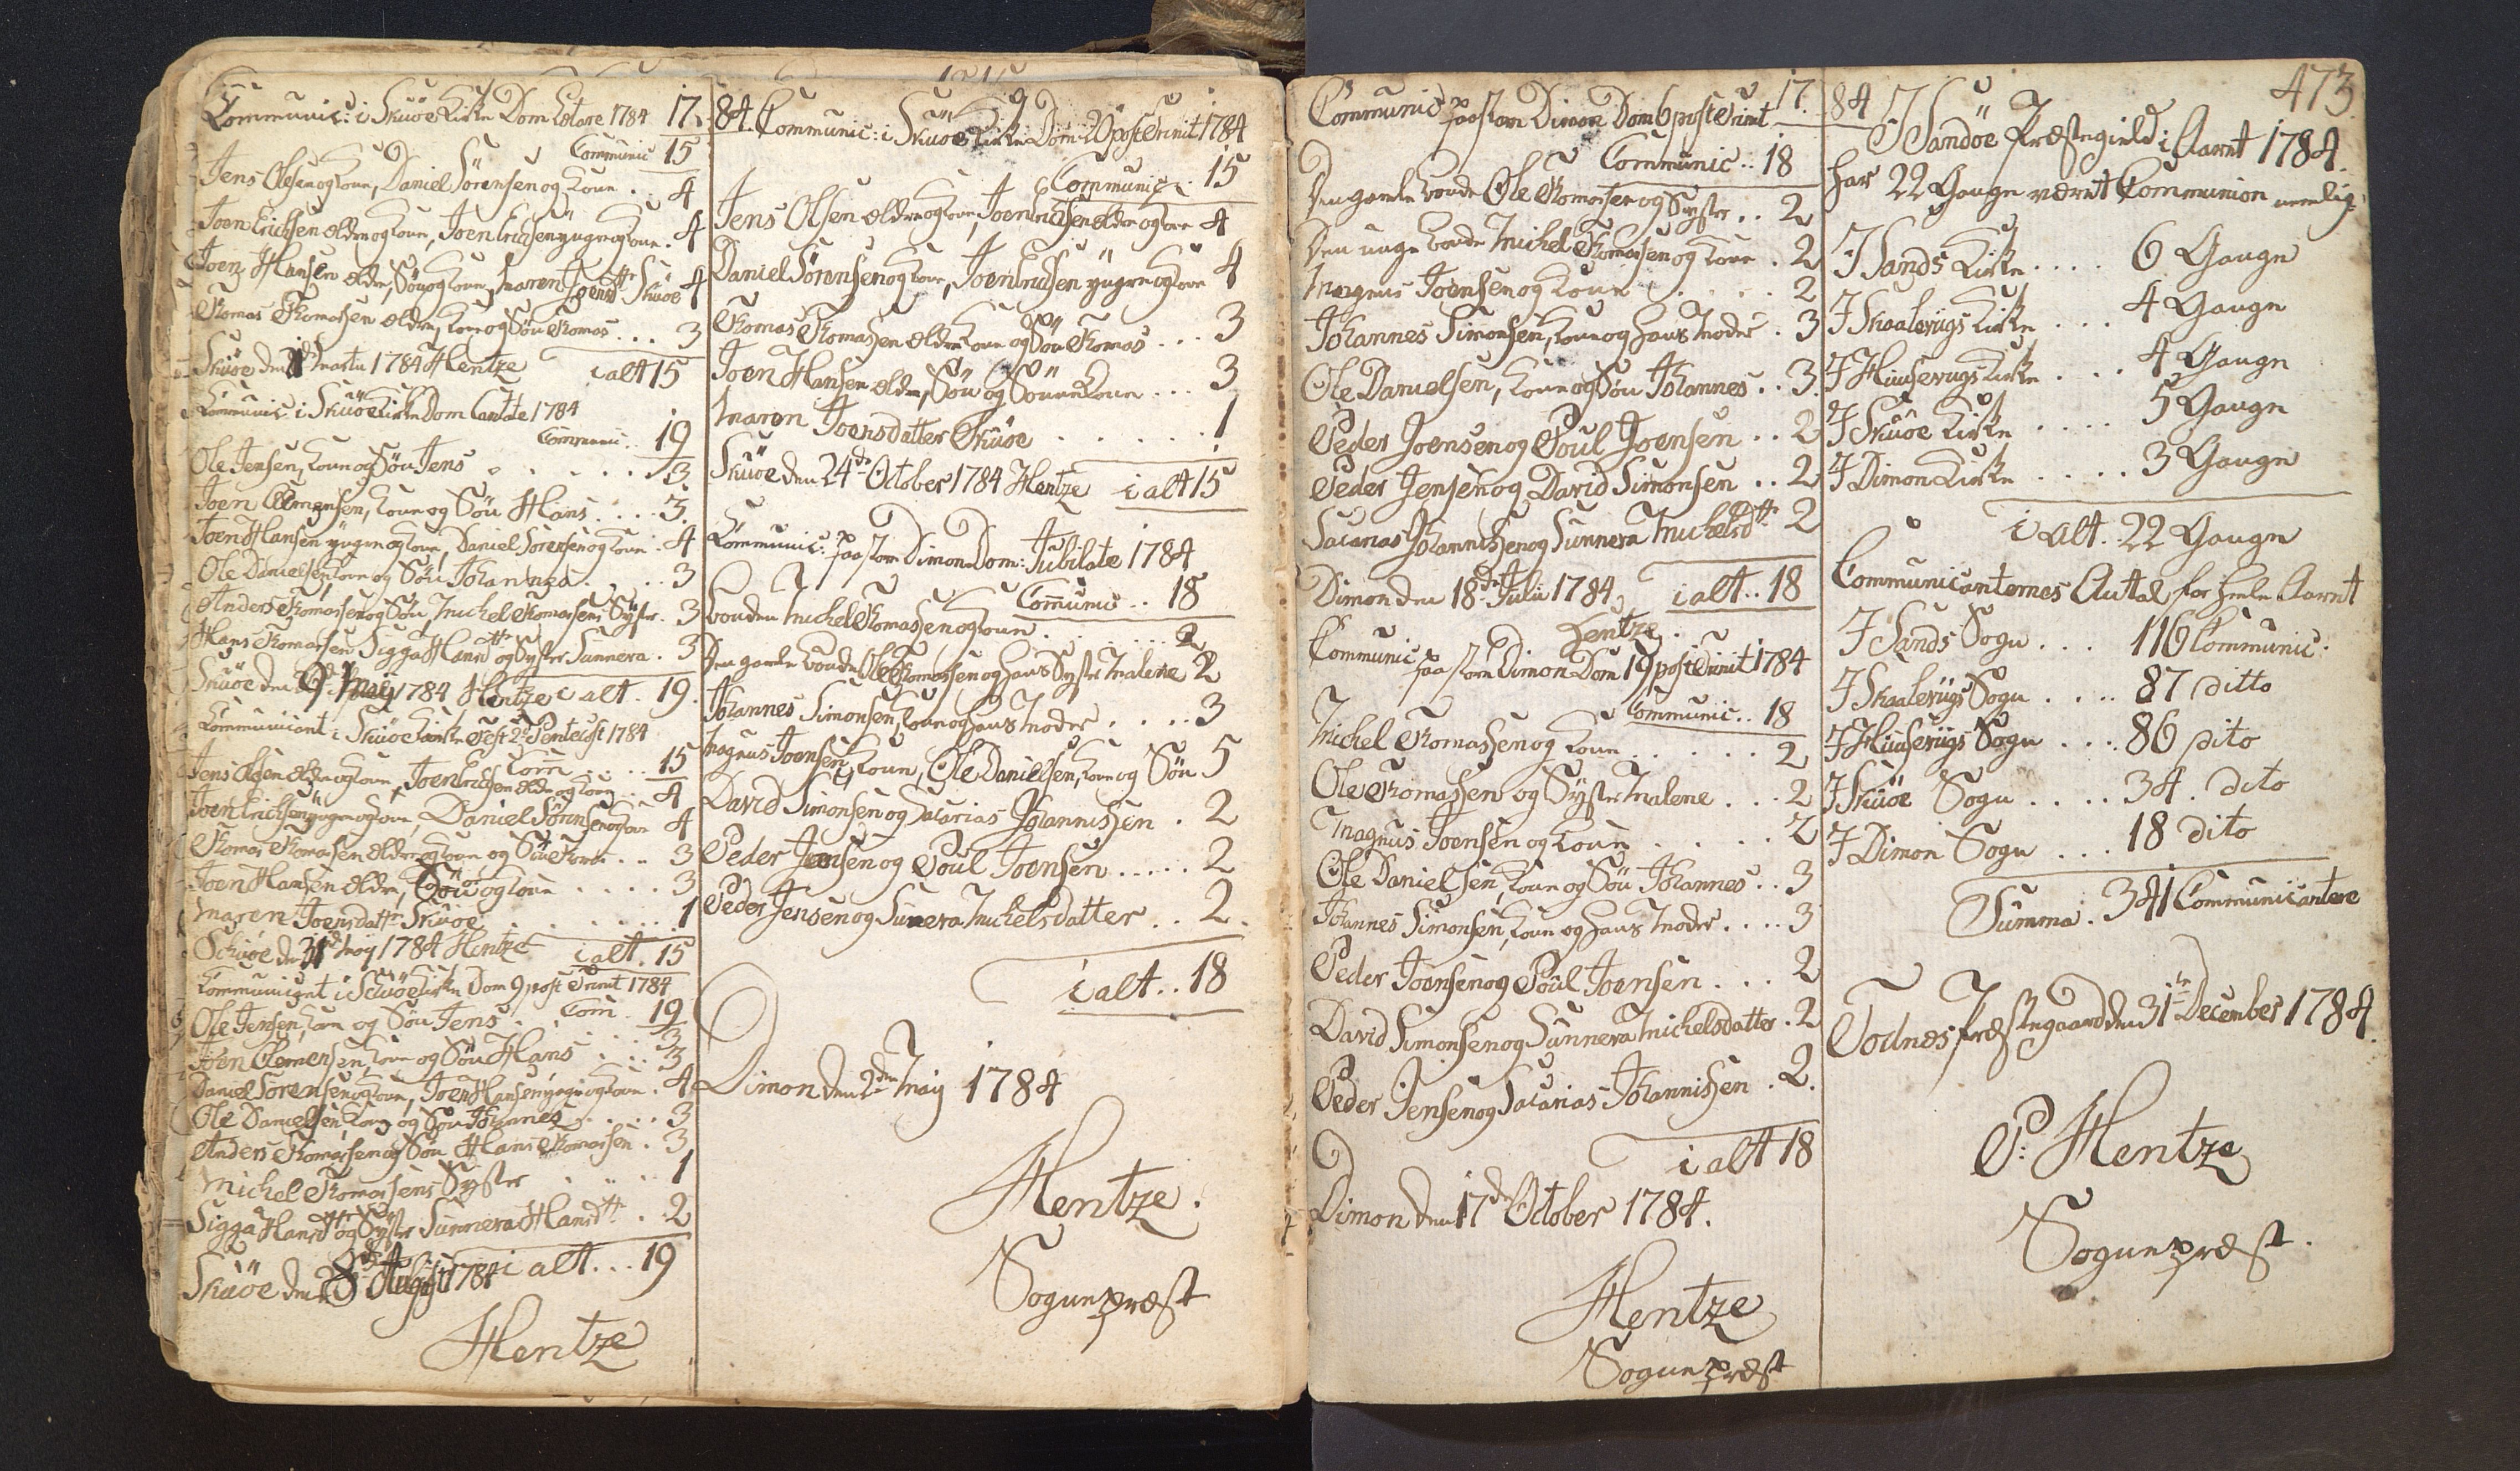 Communic: i Skuöe Kirke Dom Lætare 1784
17
Communic 15
Jens Olsen og Kone, Daniel Sörensen og Kone . . 4
Joen Erichsen ældre og Kone, Joen Erichsen yngre og Kone . 4
Joen Hansen ældre, Sön og Kone, Maren Joensdttr Skuöe 4
Thomas Thomassen ældre, Kone og Sön Thomas . . . 3
Skuöe den Martii 1784 Hentze i alt 15
Communic i Skuöe Kirke Dom Cantate 1784
Communic . 19
Ole Jensen, Kone og Sön Jens . . . . . 3
Joen Clemensen, Kone og Sön Hans . . . . 3
Joen Hansen yngre og Kone, Daniel Sörensen og Kone . 4
Ole Danielsen, Kone og Sön Johannes . . . 3
Anders Thomassen og Sön, Michel Thomassens Syster . 3
Hans Thomassen Sigga Hansdttr og Syster Sunnera . 3
Skuöe den 9 May 1784 Hentze i alt . 19.
Communicant i Skuöe Kirke Fest 2 Pentecost 1784
Com . . . 15
Jens Olsen ældre og Kone, Joen Erichsen ældre og Kone . . 4
Joen Erichsen yngre og Kone, Daniel Sörensen og Kone 4
Thomas Thomassen ældre og Kone og Sön Thomas . . . 3
Joen Hansen ældre, Sön og Kone . . . . 3
Maren Joensdattr Skuöe . . . . . 1
Schuöe den 31 May 1784 Hentze i alt . 15
Communicant i Schuöe Kirke Dom 9 post Trinit 1784
Com . 19
Ole Jensen, Kone og Sön Jens . . . 3
Joen Clemensen, Kone og Sön Hans . . . 3
Daniel Sörensen og Kone, Joen Hansen yngre og Kone . 4
Ole Danielsen, Kone og Sön Johannes . . . . 3
Anders Thomassen og Sön Hans Thomassen . 3
Michel Thomassens Syster . . . 1
Sigga Hansdttr og Syster Sunnera Hansdttr . . 2
Skuöe den 8 August 1784 i alt . . . 19
Hentze
84. Communic: i Skuöe Kirke Dom 20 post Trinit 1784
Communic . 15
Jens Olsen ældre og Kone, Joen Erichsen ældre og Kone 4
Daniel Sörensen og Kone, Joen Erichsen yngre og Kone 4
Thomas Thomassen ældre Kone og Sön Thomas . . . 3
Joen Hansen ældre, Sön og Sönnekone . . . 3
Maren Joensdatter Skuöe . . . . . . 1
Skuöe den 24de October 1784 Hentze i alt 15
Communic: paa store Dimon Dom: Jubilate 1784
Communic . . 18
Bonden Michel Thomassen og Kone . . . . . . 2
Den gamle Bonde Ole Thomassen og hans Syster Malene 2
Johannes Simonsen, Kone og hans Moder . . . . 3
Magnus Joensen, Kone, Ole Danielsen, Kone og Sön 5
David Simonsen og Sacarias Johannissen . 2
Peder Joensen og Poul Joensen . . . . . 2
Peder Jensen og Sunnera Michelsdatter . . 2.
i alt . . 18
Dimon den 2den May 1784
Hentze.
Sognepræst
Communic paa store Dimon Dom 6 post Trinit 17.
Communic . . 18
Den gamle Bonde Ole Thomassen og Syster . . 2
Den unge Bonde Michel Thomassen og Kone . 2
Magnus Joensen og Kone . . . . 2
Johannes Simonsen, Kone og hans Moder . 3
Ole Danielsen, Kone og Sön Johannes . . 3
Peder Joensen og Poul Joensen . . 2
Peder Jensen og David Simonsen . . 2
Sacarias Johannissen og Sunnera Michelsdttr 2
Dimon den 18de Julii 1784 i alt . . 18
Hentze.
Communic paa store Dimon Dom 19 post Trinit 1784
Communic . . 18
Michel Thomassen og Kone . . . . . 2
Ole Thomassen og Syster Malene . . . 2
Magnus Joensen og Kone . . . . 2
Ole Danielsen, Kone og Sön Johannes . . 3
Johannes Simonsen, Kone og hans Moder . . . . 3
Peder Joensen og Poul Joensen . . . 2
David Simonsen og Sunnera Michelsdatter . 2
Peder Jensen og Sacarias Johannissen . 2.
i alt 18
Dimon den 17de October 1784.
Hentze
Sognepræst
473.
84 I Sandöe Præstegield i Aaret 1784.
har 22 Gange været Communion nemlig
I Sands Kirke . . . . 6 Gange
I Skaalevügs Kirke . . . 4 Gange
I Huusevugs Kirke . . . 4 Gange
I Skuöe Kirke . . . . 5 Gange
I Dimon Kirke . . . . 3 Gange
i alt . . 22 Gange
Communicanternes Antal for heele Aaret
I Sands Sogn . . . 116 Communic:
I Skaalevügs Sogn . . . . 87 ditto
I Huusevügs Sogn . . . . 86 dito
I Skuöe Sogn . . . . . 34 . dito
I Dimon Sogn . . . 18 dito
Summa . 341 Communicantere
Todnes Præstegaard den 31te December 1784.
P: Hentze
Sognepræst.